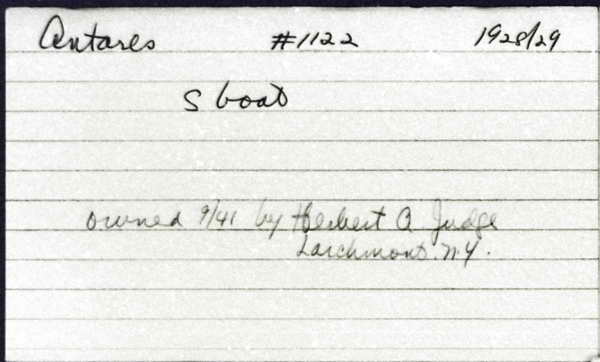 Antares #1122 1928/29
S boat
owned 9/41 by Herbert A Judge
Larchmont. N.Y.